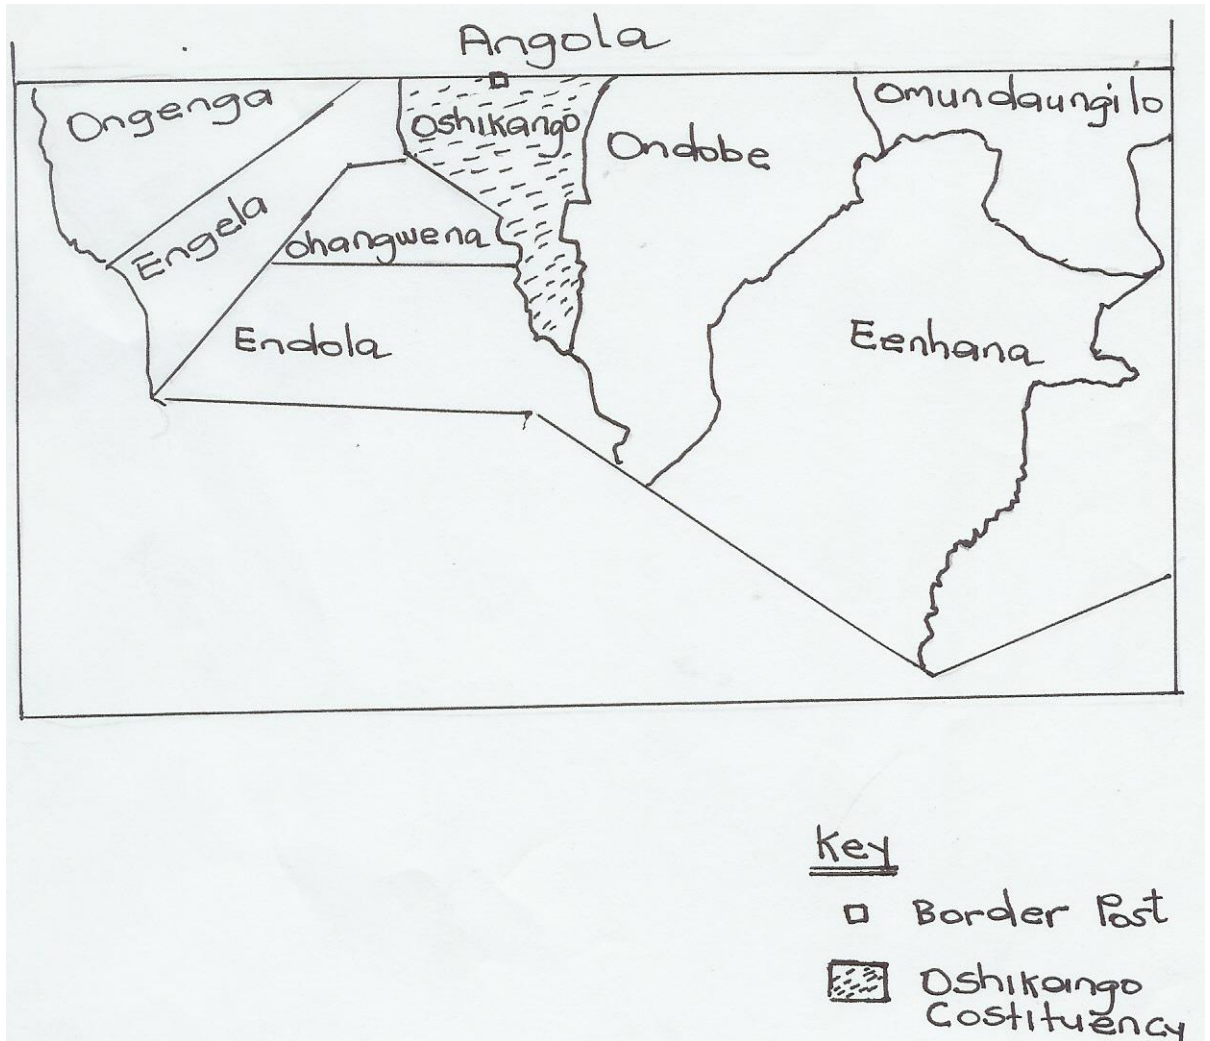 Angola
Ongenga
Oshikango
Ondobe
Omundaungilo
Engela
Ohangwena
Endola
Eenhana
Key
Border Post
Oshikango
Costituency